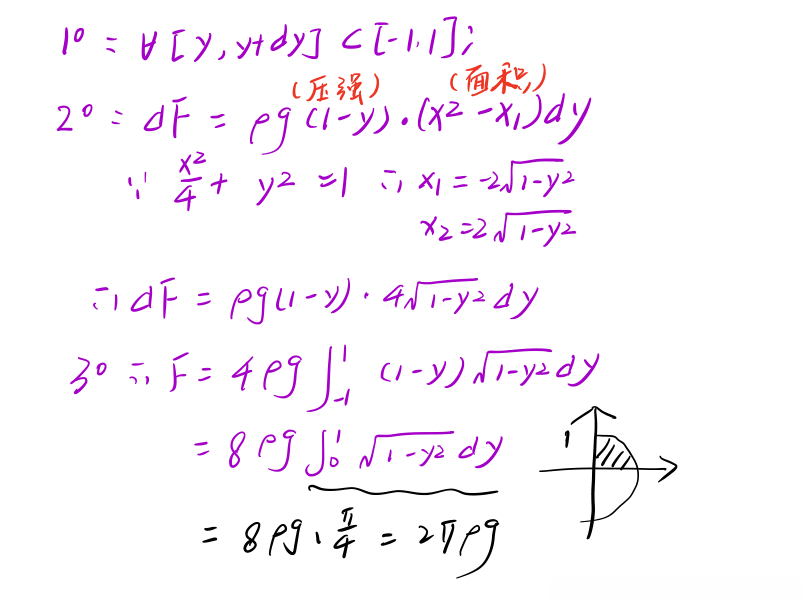 1° = ∀ [y, y+dy] ⊂ [-1, 1];
(压强) (面积)
2° = dF = ρg (1-y)·(x2 -x₁)dy
∵ x²/4 + y² = 1 ∴ x₁ = -2√(1-y²)
x₂ = 2√(1-y²)
∴ dF = ρg(1-y)· 4√(1-y²) dy
3° ∴ F = 4ρg ∫₋₁¹ (1-y)√(1-y²) dy
= 8ρg ∫₀¹ √(1-y²) dy
1
= 8ρg · π/4 = 2πρg